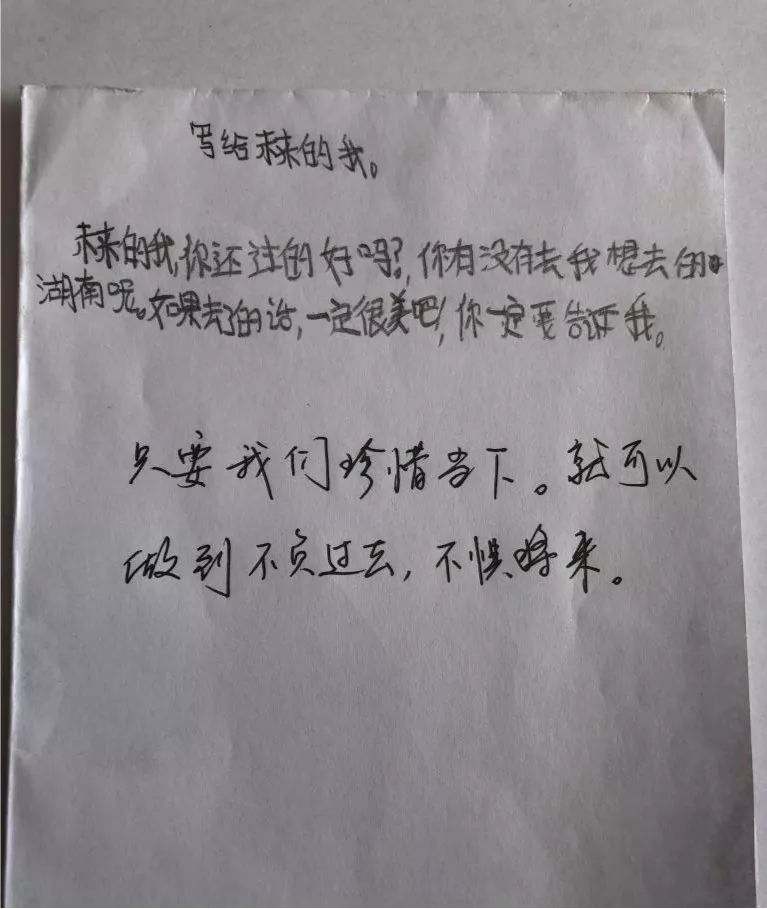 写给未来的我。
未来的我,你还过的好吗?,你有没有去我想去的
湖南呢。如果去了的话,一定很美吧!,你一定要告诉我。
只要我们珍惜当下。就可以
做到不负过去,不惧将来。